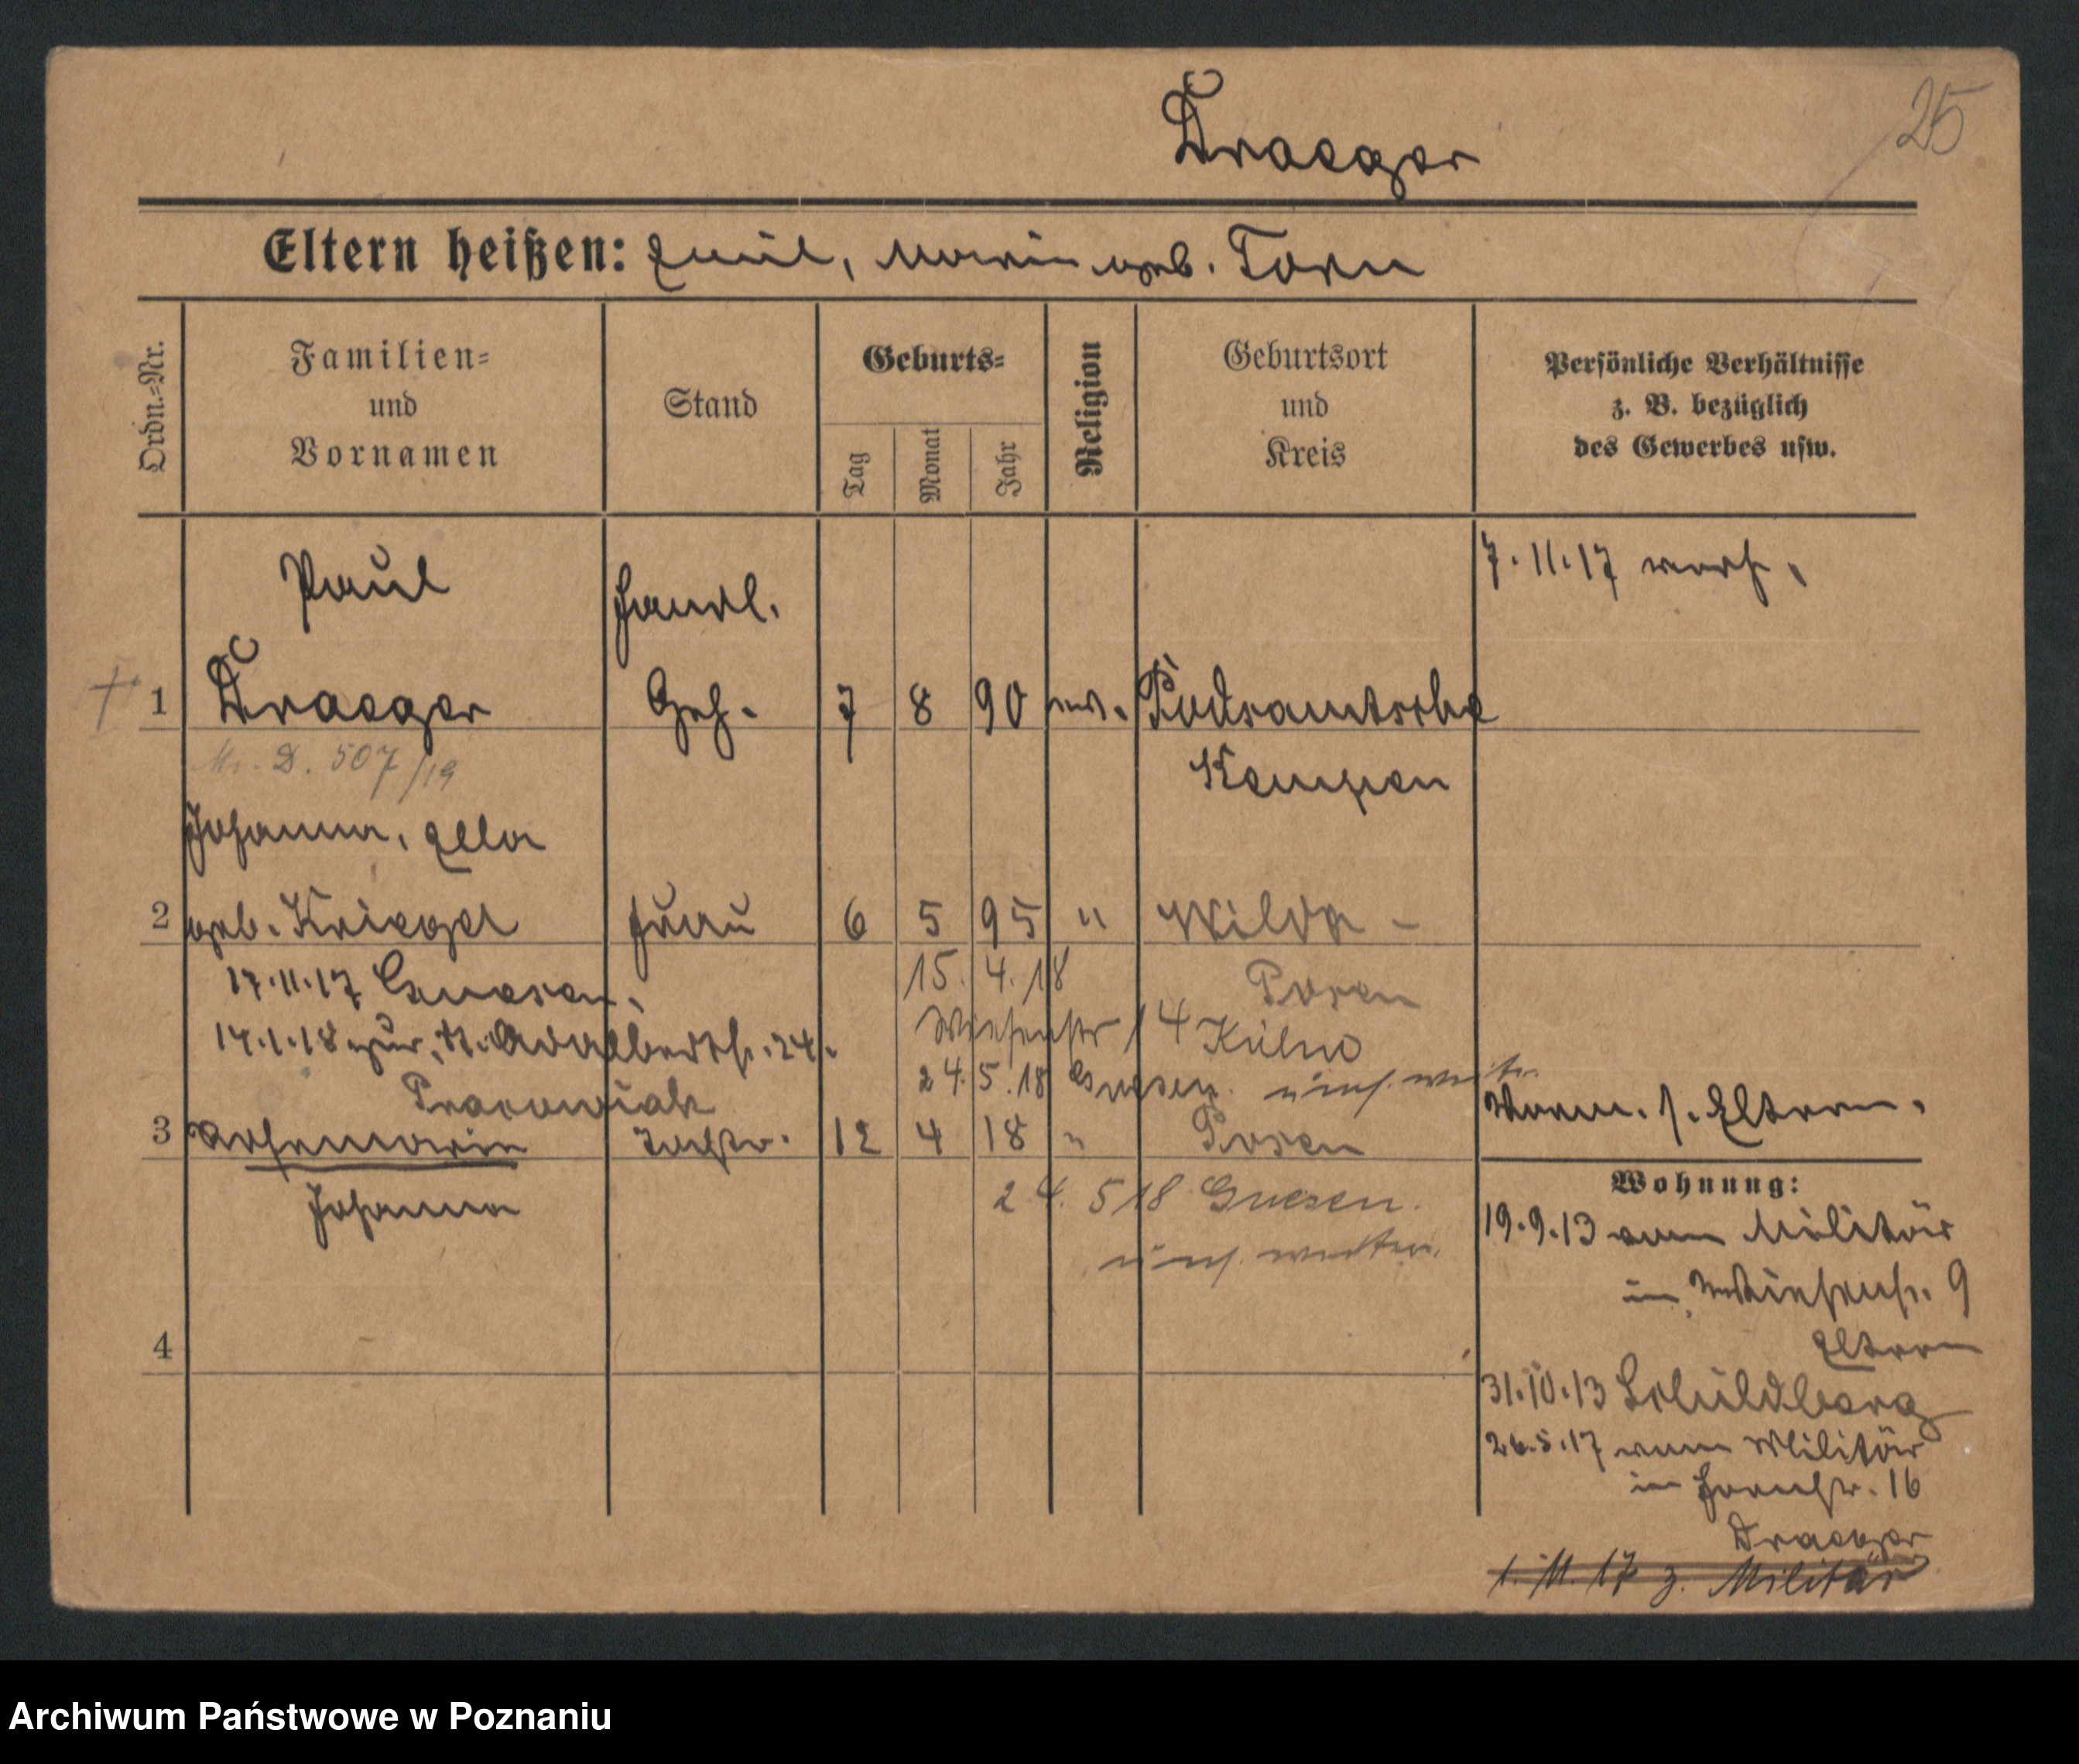 25
Draeger
Eltern heißen: Emil, Maria geb. Torn
Ordn.-Nr.
Familien-
und
Vornamen
Stand
Geburts-
Tag
Monat
Jahr
Religion
Geburtsort
und
Kreis
Persönliche Verhältnisse
z. B. bezüglich
des Gewerbes usw.
7.11.17 verh.
Paul
Handl.
1 Draeger Geh. 7 8 90 ev. Podsamtsche
D. 507/19
Kempen
Johanna, Ella
2 geb. Kriegel Frau 6 5 95 " Wilda -
17.11.17 Gnesen.
15. 4. 18
Posen
17.1.18 zur. St. Adalbertstr. 24.
Wiesenstr 14 Kühn
24.5.18 Gnesen.
3 Rosemarie Tochter. 12 4 18 " Posen
Johanna
Vorm. s. Eltern.
24. 5 18 Gnesen.
Wohnung:
19.9.13 vom Militär
in Wiesenstr. 9
Eltern
31.10.13 Schildberg
26.5.17 vom Militär
in 16
Draeger
1. 11. 17 z. Militär
4
Archiwum Państwowe w Poznaniu